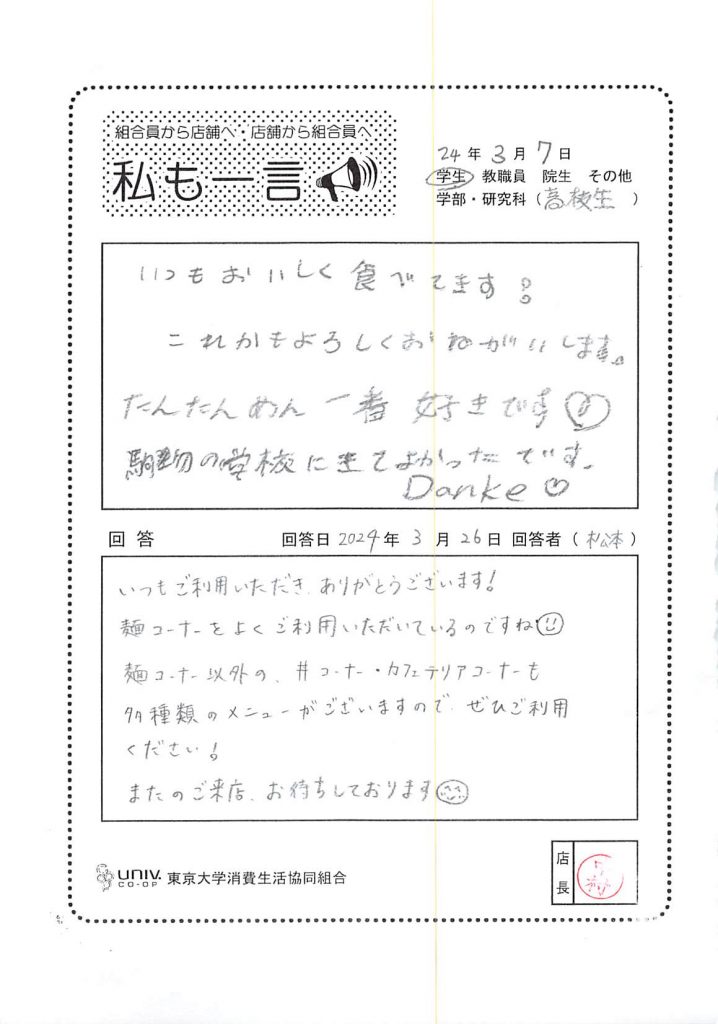 組合員から店舗へ・店舗から組合員へ
私も一言
24年3月7日
学生 教職員 院生 その他
学部・研究科(高校生)
いつもおいしく食べてます!
これかもよろしくおねがいします。
たんたんめん一番好きです
駒場の学校に生てよかったです。
Danke♡
回答 回答日2024年3月26日 回答者(松本)
いつもご利用いただき、ありがとうございます!
麺コーナーをよくご利用いただいているのですね
麺コーナー以外の、丼コーナー・カフェテリアコーナーも
多種類のメニューがございますので、ぜひご利用
ください!
またのご来店、お待ちしております
UNIV. CO-OP 東京大学消費生活協同組合
店長